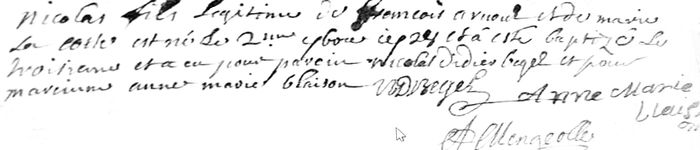 nicolas fils Legitime de francois arnoul et de marie
La coste est né Le 2me et a esté baptizé Le
troisieme et a eu pour parein nicolas didier begel et pour
mareinne anne marie blaison NDBegel Anne Marie
blaison
Mengeolle